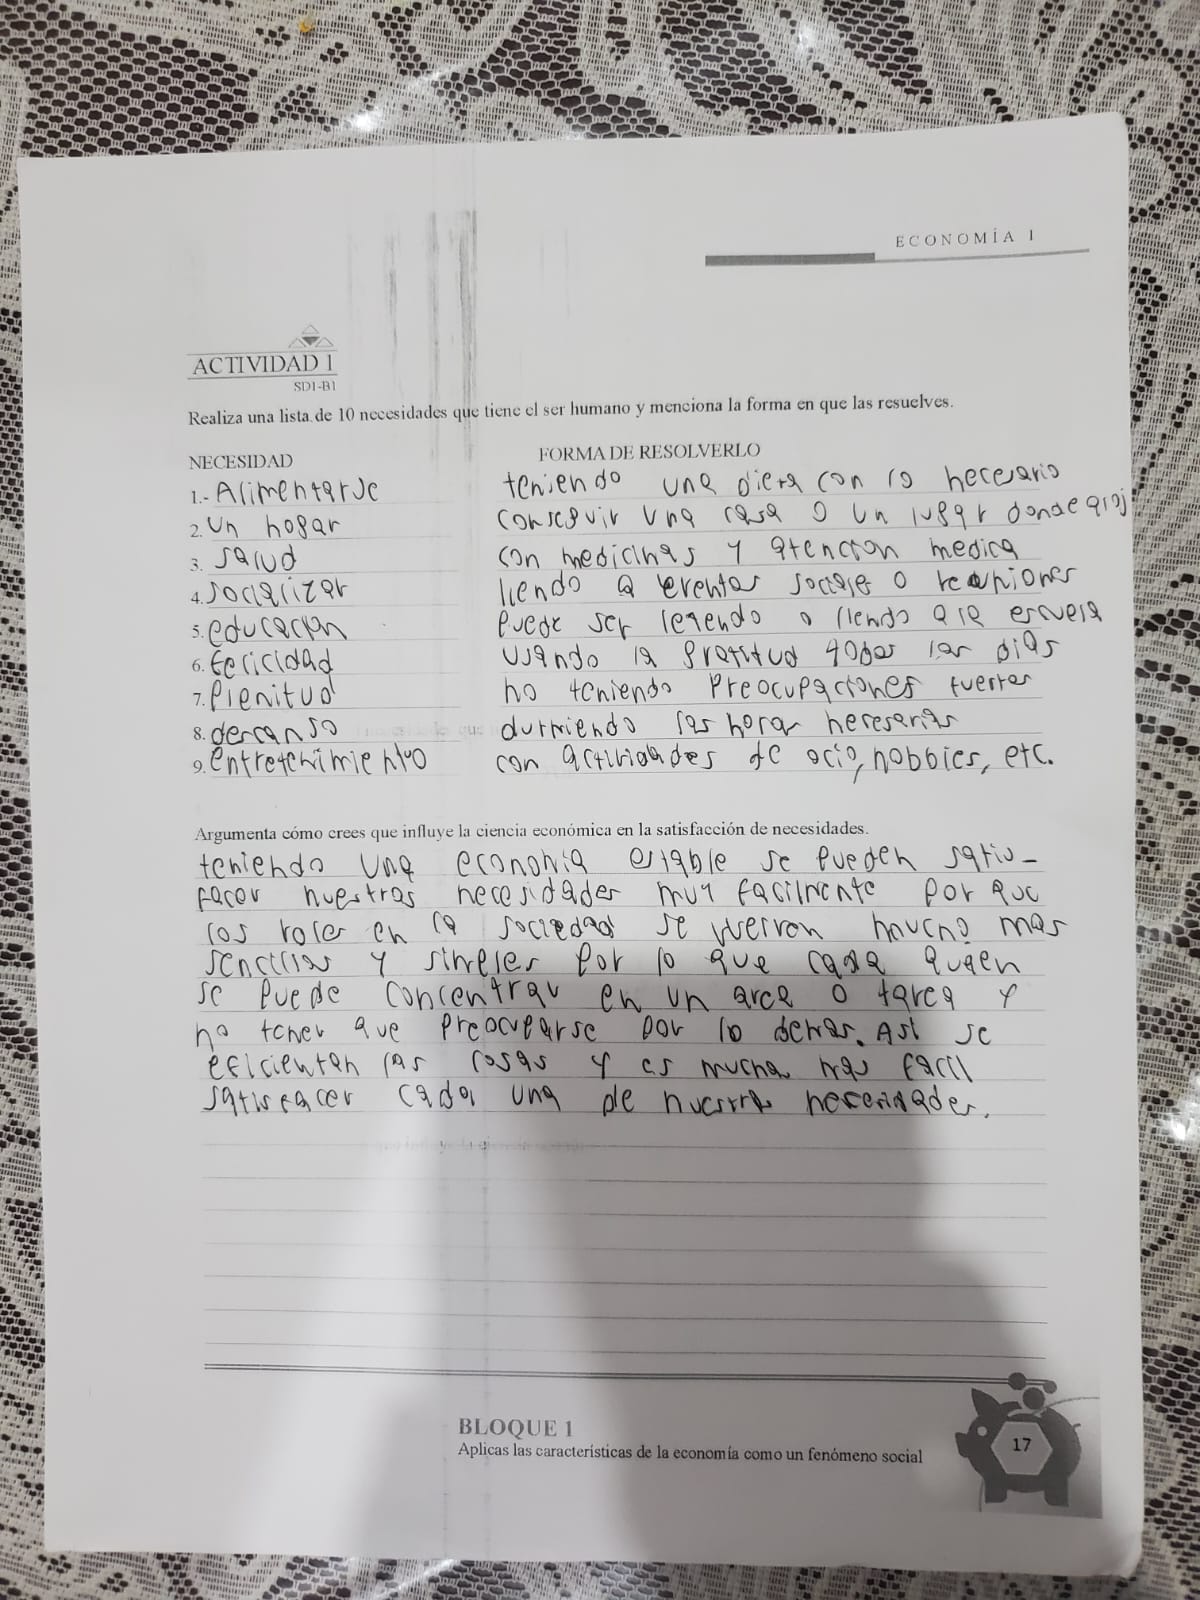 ECONOMÍA 1
ACTIVIDAD 1
SD1-B1
Realiza una lista de 10 necesidades que tiene el ser humano y menciona la forma en que las resuelves.
NECESIDAD FORMA DE RESOLVERLO
1.- Alimentarse teniendo una dieta con lo necesario
2. un hogar conseguir una casa o un lugar donde aloj
3. salud con medicinas y atencion medica
4. socializar llendo a eventos sociales o reuniones
5. educacion puede ser leyendo o llendo a la escuela
6. felicidad usando la gratitud todos los dias
7. plenitud no teniendo preocupaciones fuertes
8. descanso durmiendo las horas necesarias
9. entretenimiento con actividades de ocio, hobbies, etc.
Argumenta cómo crees que influye la ciencia económica en la satisfacción de necesidades.
teniendo una economia estable se pueden satis-
facer nuestras necesidades muy facilmente por que
los roles en la sociedad se vuelven mucho mas
sencillas y simples por lo que cada quien
se puede concentrar en un area o tarea y
no tener que preocuparse por lo demas. Asi se
eficientan las cosas y es mucho mas facil
satisfacer cada una de nuestras necesidades.
BLOQUE 1
Aplicas las características de la economía como un fenómeno social
17